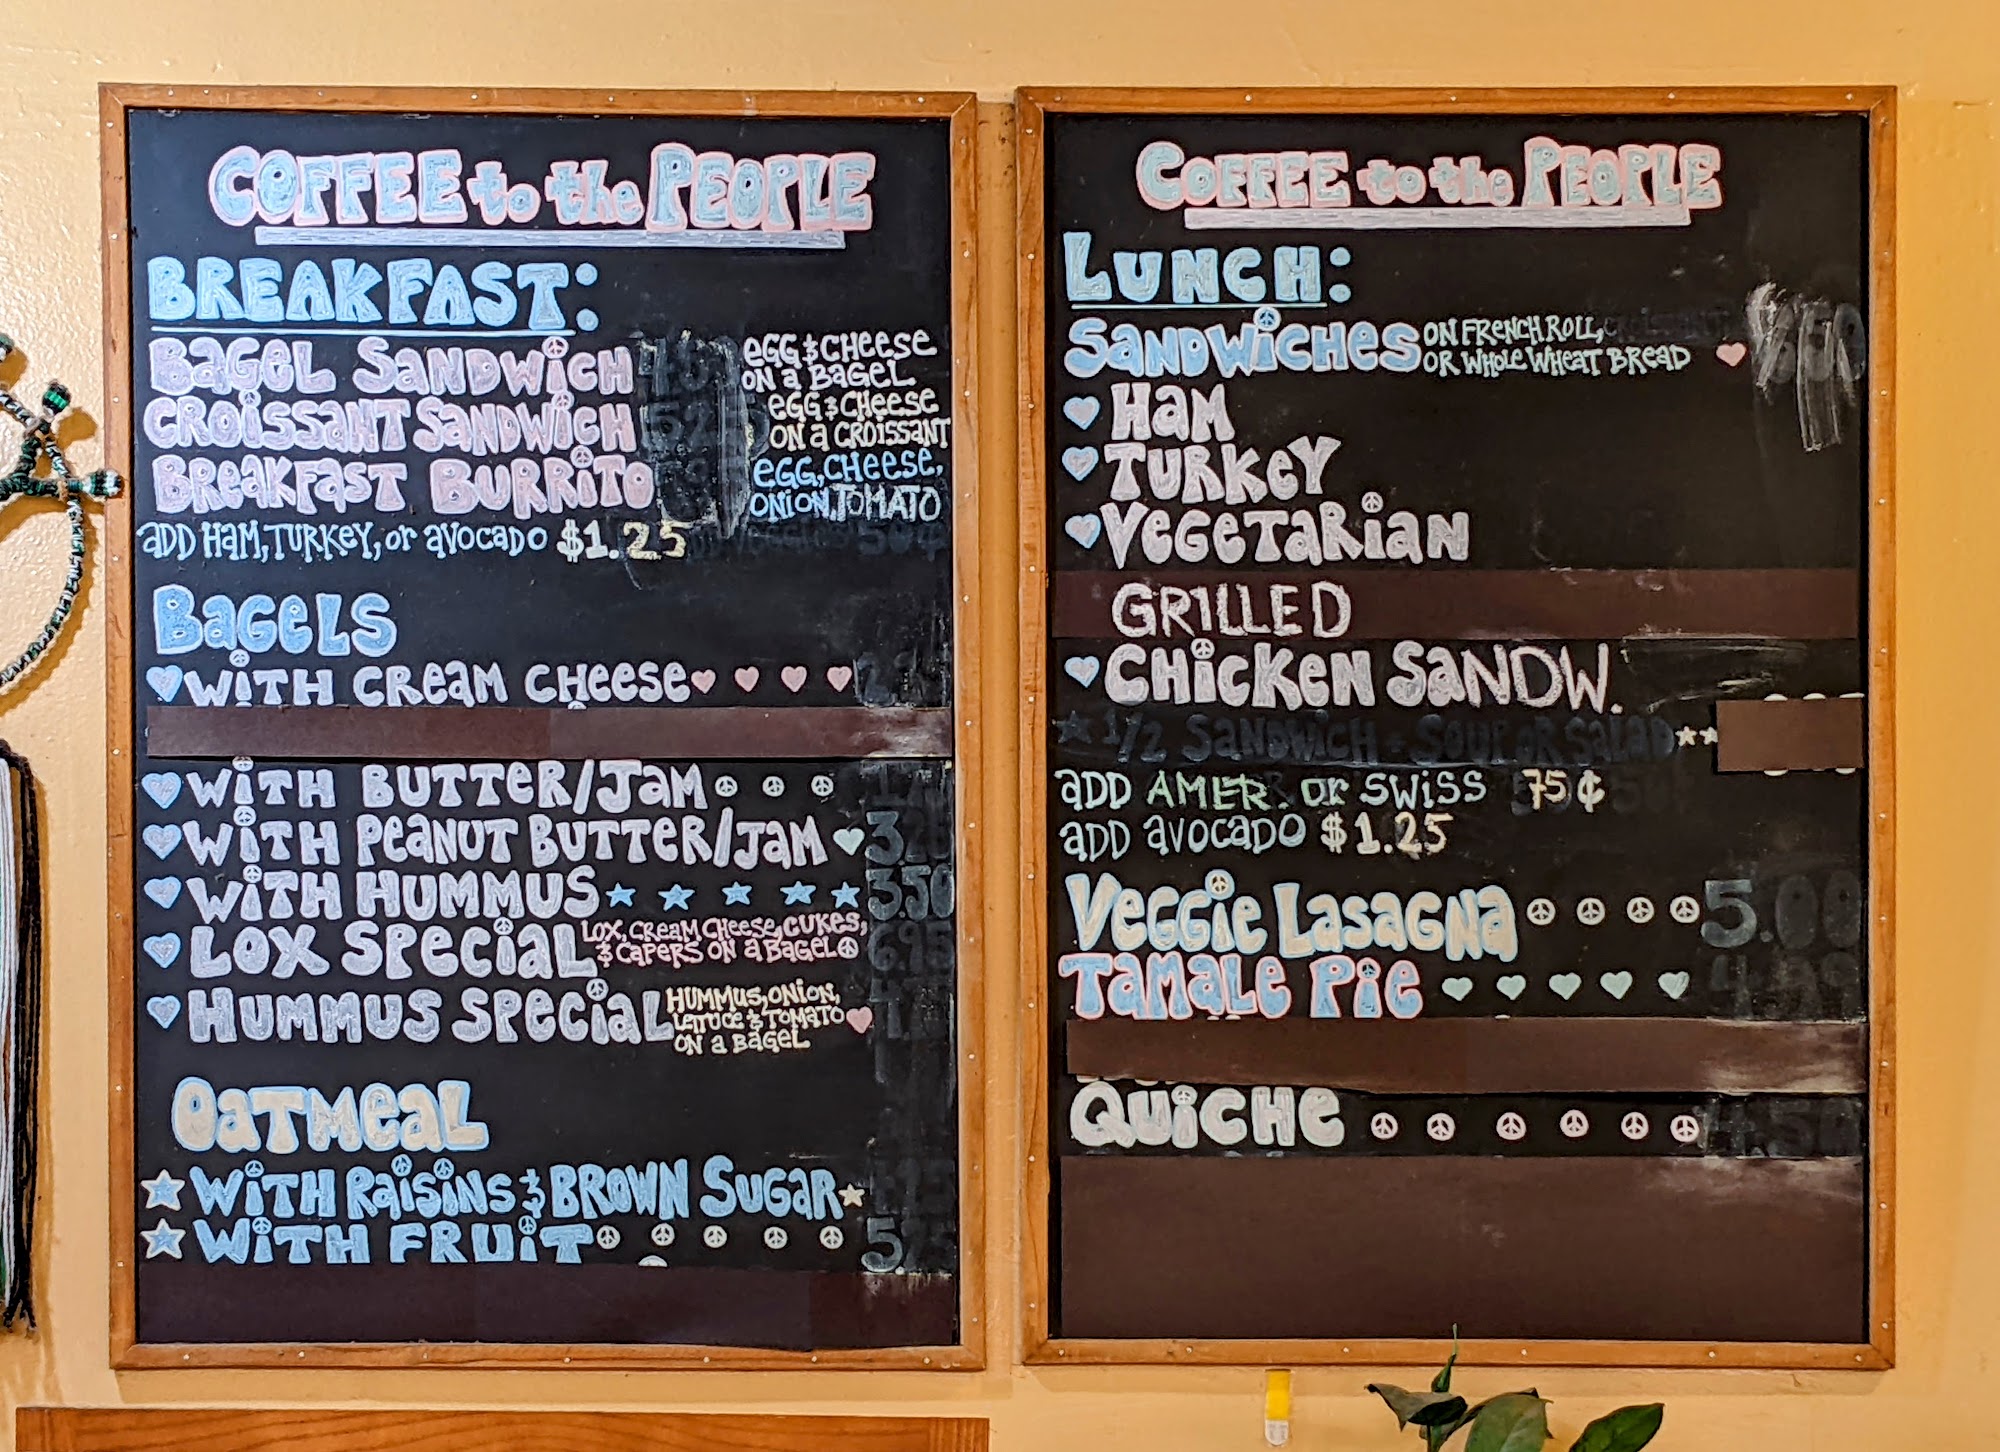 COFFEE to the PEOPLE
BREAKFAST:
BAGEL SANDWICH
EGG & CHEESE
ON A BAGEL
CROISSANT SANDWICH
EGG & CHEESE
ON A CROISSANT
BREAKFAST BURRITO
EGG, CHEESE,
ONION, TOMATO
ADD HAM, TURKEY, or AVOCADO $1.25
50¢
BAGELS
WITH CREAM CHEESE
WITH BUTTER/JAM
WITH PEANUT BUTTER/JAM
WITH HUMMUS 3.50
LOX SPECIAL
LOX, CREAM CHEESE, CUKES,
& CAPERS ON A BAGEL
6.95
HUMMUS SPECIAL
HUMMUS, ONION,
LETTUCE & TOMATO
ON A BAGEL
OATMEAL
WITH RAISINS & BROWN SUGAR
WITH FRUIT
COFFEE to the PEOPLE
LUNCH:
SANDWICHES
ON FRENCH ROLL, CROISSANT
OR WHOLE WHEAT BREAD
HAM
TURKEY
VEGETARIAN
GRILLED
CHICKEN SANDW.
1/2 SANDWICH + SOUP OR SALAD
ADD AMER. OR SWISS 75¢
ADD AVOCADO $1.25
VEGGIE LASAGNA 5.00
TAMALE PIE
QUICHE 4.50